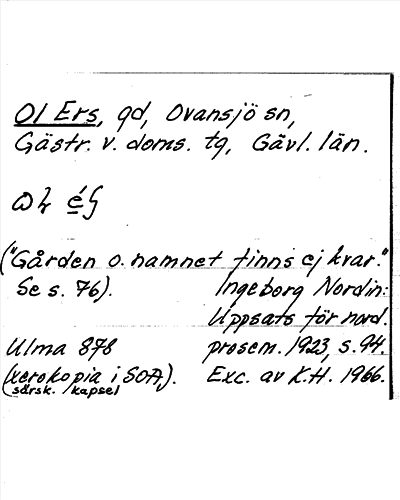 Ol Ers, gd, Ovansjö sn,
Gästr. v. doms. tg, Gävl. län.
("Gården o. namnet finns ej kvar."
Se s. 76). Ingeborg Nordin:
Uppsats för nord.
Ulma 878 prosem. 1923, s. 94.
(xerokopia i SOA,). Exc. av K.H. 1966.
särsk. kapsel